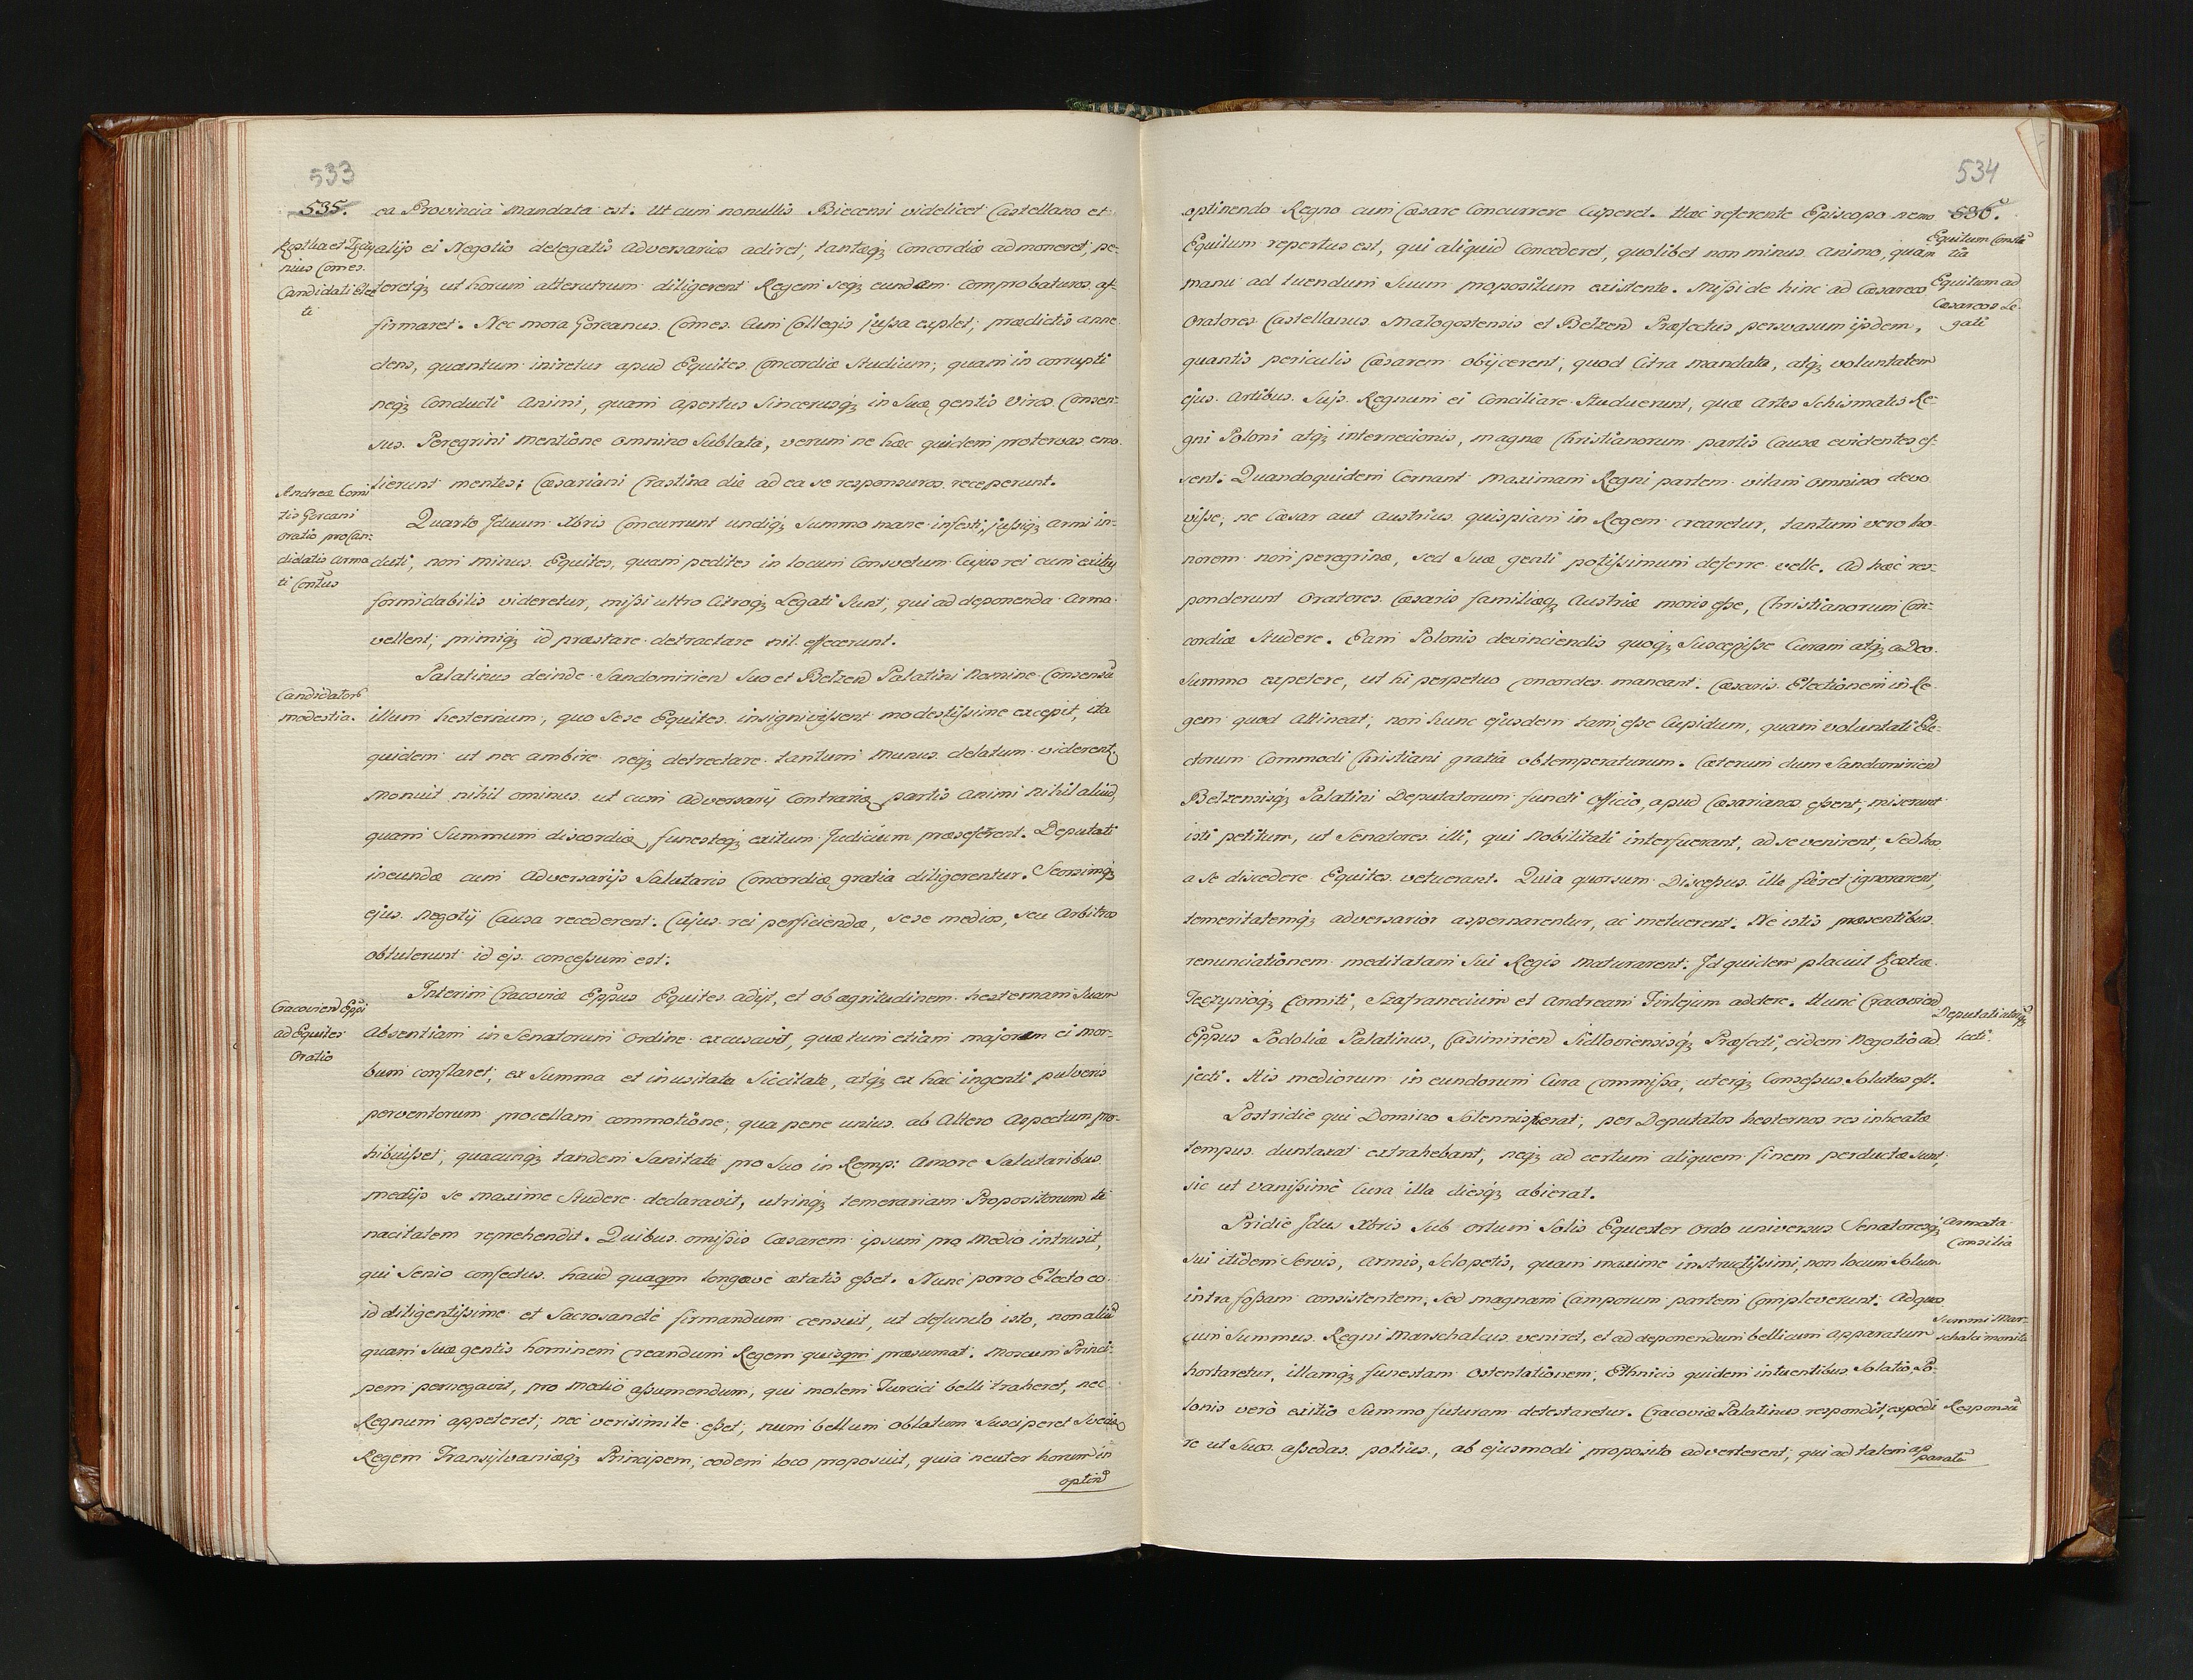 533
535.
ea Provincia mandata est. Ut cum nonullis Biecensi videlicet Castellano et
alijs ei Negotio delegatis adversarios adiret, tantæqꝫ Concordiæ admoneret, pe-
teretqꝫ ut horum alterutrum diligerent Regem seqꝫ eundem comprobaturos af-
firmaret. Nec mora Gorcanus Comes cum Collegis jussa explet; prædictis anne
ctens, quantum iniretur apud Equites Concordiæ Studium; quam in corrupti
neqꝫ Conducti Animi, quam apertus Sincerusqꝫ in Suæ gentis viros Consen-
sus. Peregrini mentione omnino Sublata, verum ne hæc quidem protervas emo-
lierunt mentes; Cæsariani Crastina die ad ea se responsuros receperunt.
Kostka et
nius Comes
Candidati Elec
ti
Andreæ Comi
tis Gorcani
oratio pro Can-
didatis Arma
ti Contus
Quarto Iduum Xbris Concurrunt undiqꝫ Summo mane infesti, jussiqꝫ armi in-
duti, non minus Equites, quam pedites in locum Consvetum Cujus rei cum exitus
formidabilis videretur, missi ultro Citroqꝫ Legati Sunt, qui ad deponenda Arma
vellent; primiqꝫ id præstare detractare nil effecerunt.
Candidatorū
modestia.
Palatinus deinde Sandomirien Suo et Belzen Palatini Nomine Consensū
illum hesternum, quo Sese Equites insignivissent modestissime excepit, ita
quidem ut nec ambire neqꝫ detrectare tantum Munus delatum viderentꝫ
Monuit nihil ominus ut cum Adversarij Contrariæ partis Animi nihil aliud,
quam Summum discordiæ funestæqꝫ exitum Judicium præseferent. Deputati
ineundæ cum Adversarijs Salutaris Concordiæ gratia diligerentur. Seorsimqꝫ
ejus Negotij Causa recederent. Cujus rei perficiendæ, sese medios, seu Arbitros
obtulerunt id ejs concessum est.
Cracovien Eppi
ad Equites
Oratio
Interim Cracoviæ Eppus Equites adijt, et ob ægritudinem hesternam Suam
Absentiam in Senatorum Ordine excusavit, quæ tum etiam majorem ei mor-
bum conflaret; ex Summa et inusitata Siccitate, atqꝫ ex hac ingenti pulveris
perventorum procellam commotione; qua pene unius ab Altero Aspectum pro-
hibuisset, quacunqꝫ tandem Sanitate pro Suo in Remp: Amore Salutaribus
medijs se maxime Studere declaravit, utrinqꝫ temerariam Propositorum te
nacitatem reprehendit. Quibus omissis Cæsarem ipsum pro Medio intrusit,
qui Senio confectus haud quaqm longæve ætatis esset. Nunc porro Electo eo
id diligentissime et Sacrosancte firmandum censuit, ut defuncto isto, non aliud
quam Suæ gentis hominem creandum Regem quisqm præsumat. Moscum Princi-
pem pernegavit, pro medio assumendum, qui molem Turcici belli traheret, nec
Regnum appeteret; nec verisimile esset; num bellum oblatum Susciperet Sveciæ
Regem Transylvaniæqꝫ Principem, eodem loco proposuit, quia neuter horum in
optin
534
536.
optinendo Regno cum Cæsare Concurrere Cuperet. Hæc referente Episcopo nemo
Equitum repertus est, qui aliquid Concederet, quolibet non minus Animo, quam
manu ad tuendum Suum propositum existente. Missi de hinc ad Cæsareos
Oratores Castellanus Malogostensis et Belzen Præfectus persvasum ipsdem,
quantis periculis Cæsarem obijcerent, quod Citra mandata, atqꝫ voluntatem
ejus Artibus Sujs Regnum ei Conciliare Studuerunt, quæ Artes Schismatis Re-
gni Poloni atqꝫ internecionis, magnæ Christianorum partis Causæ evidentes es-
sent. Quandoquidem Cernant maximam Regni partem vitam omnino devo
visse, ne Cæsar aut Austrius quispiam in Regem crearetur, tantum vero ho-
norem non peregrinæ, sed Suæ genti potissimum deferre velle. Ad hæc res-
ponderunt Oratores Cæsaris familiæqꝫ Austriæ moris esse, Christianorum Con-
cordiæ Studere. Eam Polonis devinciendis quoqꝫ Suscepisse Curam atqꝫ a Deo
Summo expetere, ut hi perpetuo concordes maneant. Cæsaris Electionem in Re
gem quod Attineat; non hunc ejusdem tam esse Cupidum, quam voluntati Ele-
ctorum Commodi Christiani gratia obtemperaturum. Cæterum dum Sandomirien
Belzensisqꝫ Palatini Deputatorum functi Officio, apud Cæsarianos essent, miserunt
isti petitum, ut Senatores illi, qui Nobilitati interfuerant, ad se venirent, Sed hos
a se discedere Equites vetuerant. Quia quorsum Discessus ille fieret ignorarent,
temeritatemqꝫ adversarior aspernarentur, ac metuerent. Ne istis præsentibus
renunciationem meditatam Sui Regis Maturarent. Id quidem placuit Kostcæ
Tęczynioqꝫ Comiti, Szafranecium et Andream Firlejum addere. Hunc Cracovien
Eppus Podoliæ Palatinus, Casimirien Sidloviensisqꝫ Præfecti, eidem Negotio ad
jecti. His mediorum in eundorum Cura Commissa, uterqꝫ Consessus Solutus est.
Equitum Constā
tia
Equitum ad
Cæsareos Le-
gati
Deputati utrinqꝫ
lecti
Postridie qui Domino Solennis erat; per Deputatos hesternos res incheatæ
tempus duntaxat extrahebant, neqꝫ ad certum aliquem finem perductæ sunt,
sic ut vanissime Cura illa diesqꝫ abierat.
Pridie Idus Xbris Sub ortum Solis Equester Ordo universus Senatoresqꝫ
sui itidem Servis, Armis, Sclopetis, quam maxime instructissimi, non locum Solum
intra fossam consistentem, Sed magnam Camporum partem Compleverunt. Ad quos
cum Summus Regni Marschalcus veniret, et ad deponendum bellicum apparatum
hortaretur, illamqꝫ funestam Ostentationem, Ethnicis quidem intuentibus Solatio, Po-
lonis vero exitio Summo futuram detestaretur. Cracoviæ Palatinus respondit, expedi
re ut Suos assedas potius, ab ejusmodi proposito adverterent, qui ad talem ap
paratū
Armata
Consilia
Summi Mar-
schalci monita
Responsū